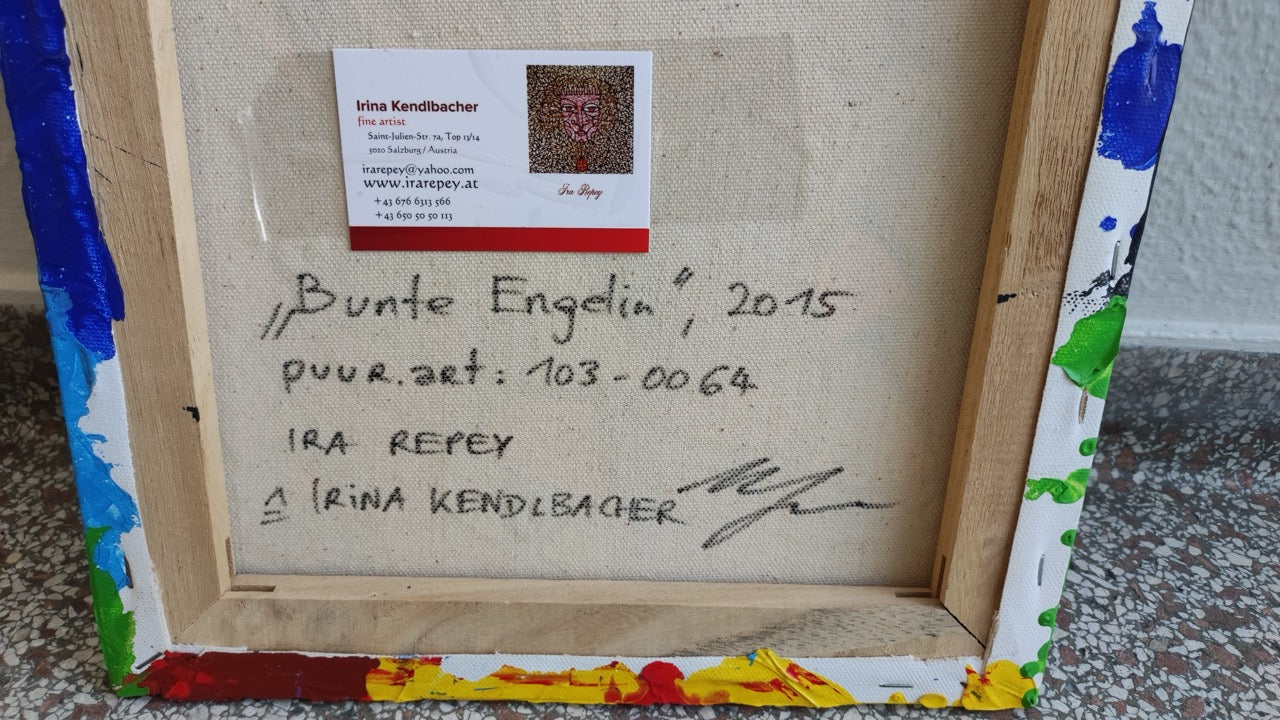 Irina Kendlbacher
fine artist
Saint-Julien-Str. 7a, Top 13/14
5020 Salzburg / Austria
irarepey@yahoo.com
www.irarepey.at
+43 676 6313 566
+43 650 50 50 113
Ira Repey
„Bunte Engelin“, 2015
puur.art: 103-0064
IRA REPEY
≙ IRINA KENDLBACHER